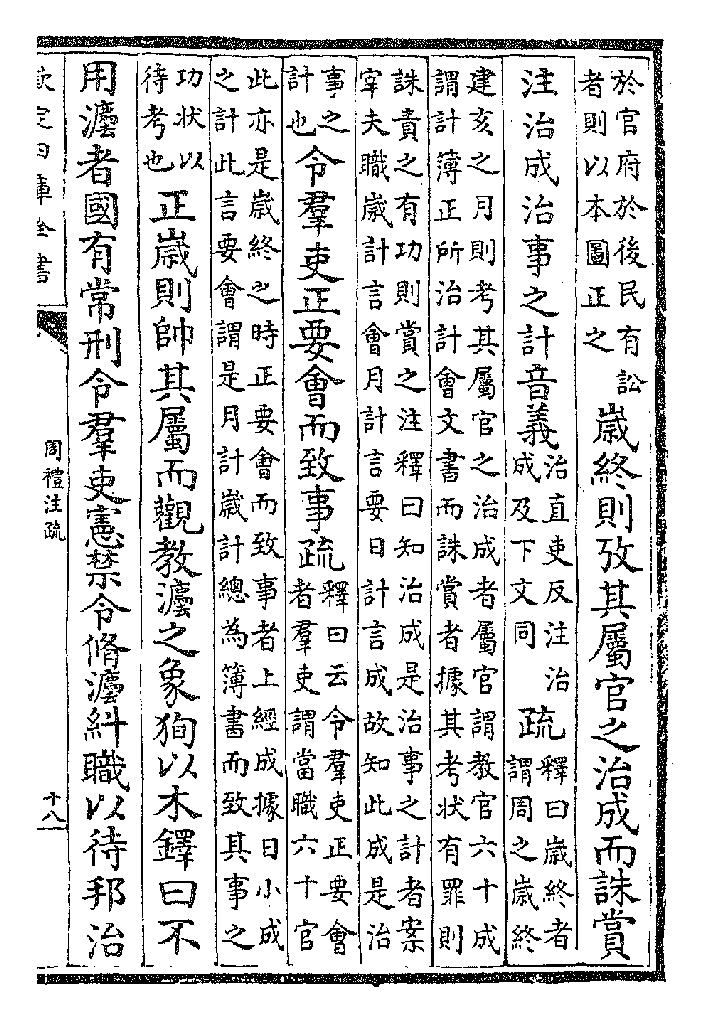 於官府於後民有訟
者則以本圖正之
歲終則攷其屬官之治成而誅賞
注治成治事之計音義
治直吏反注治
成及下文同
疏
釋曰歲終者
謂周之歲終
建亥之月則考其屬官之治成者屬官謂教官六十成
謂計簿正所治計會文書而誅賞者據其考狀有罪則
誅責之有功則賞之注釋曰知治成是治事之計者案
宰夫職歲計言會月計言要日計言成故知此成是治
事之
計也
令羣吏正要會而致事疏
釋曰云令羣吏正要會
者羣吏謂當職六十官
此亦是歲終之時正要會而致事者上經成據日小成
之計此言要會謂是月計歲計總為簿書而致其事之
功狀以
待考也
正歲則帥其屬而觀教灋之象狥以木鐸曰不
用灋者國有常刑令羣吏憲禁令脩灋糾職以待邦治
欽定四庫全書
周禮注疏
十八